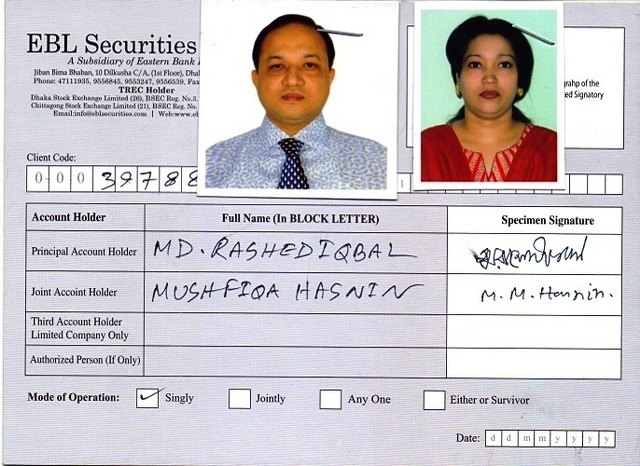 EBL Securities
A Subsidiary of Eastern Bank
Jiban Bima Bhaban, 10 Dilkusha C/A, (1st Floor),
Phone: 47111935, 9556845, 9553247, 9556539,
TREC Holder
Dhaka Stock Exchange Limited (26), BSEC Reg. No.3.
Chittagong Stock Exchange Limited (21), BSEC Reg. No.
Email:info@eblsecurities.com | Web:www.eb
grahp of the
ed Signatory
Client Code:
0 0 0 3 9 7 8 8
Account Holder Full Name (In BLOCK LETTER) Specimen Signature
Principal Account Holder MD. RASHED IQBAL
Joint Accoint Holder MUSHFIQA HASNIN M. M. Hasnin.
Third Account Holder
Limited Company Only
Authorized Person (If Only)
Mode of Operation: ✓ Singly Jointly Any One Either or Survivor
Date: d d m m y y y y